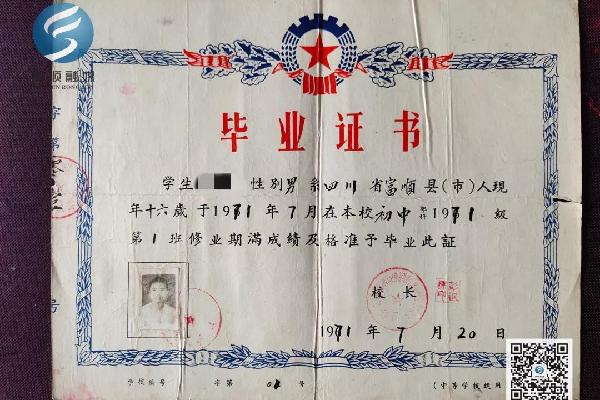 毕业证书
学生 性别男 系四川省富顺县(市)人现
年十六歲于1971年7月在本校初中1971级
第1班修业期满成绩及格准予毕业此証
校长
1971年7月20日
学校编号 字第 01 号